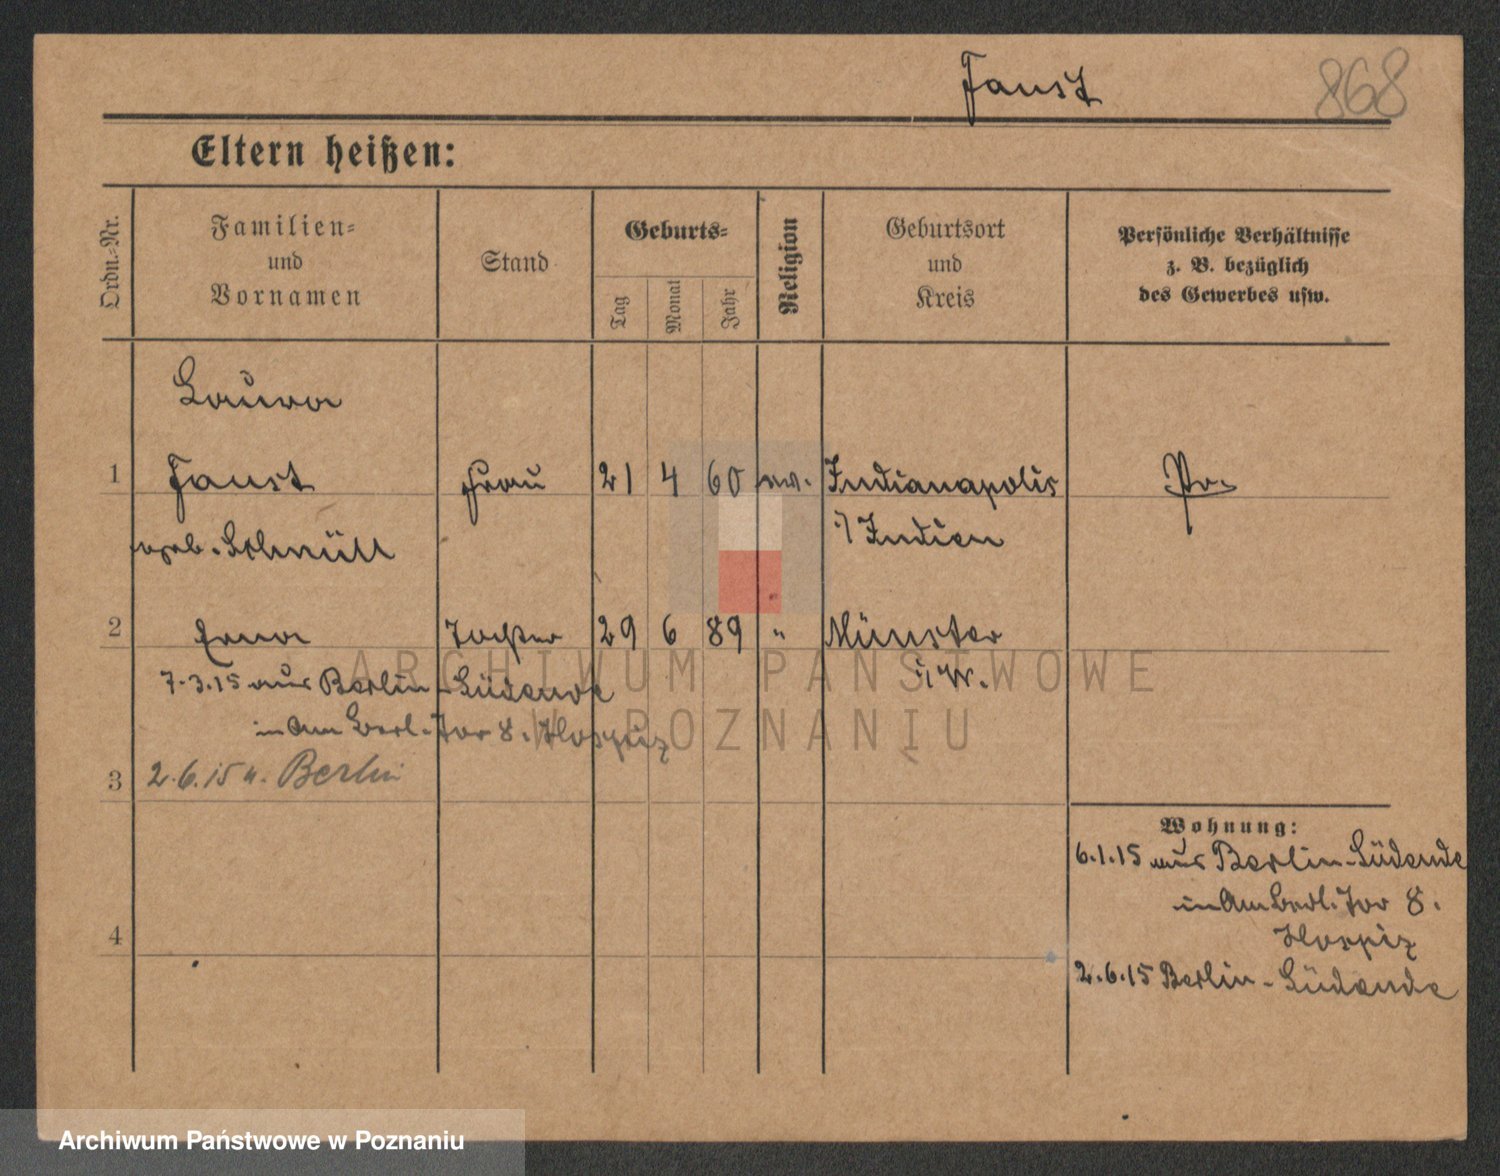 Faust 868
Eltern heißen:
Ordn.-Nr.
Familien-
und
Vornamen
Stand
Geburts-
Tag
Monat
Jahr
Religion
Geburtsort
und
Kreis
Persönliche Verhältnisse
z. B. bezüglich
des Gewerbes usw.
Laura
1 Faust Frau 21 4 60 ev. Indianapolis Pr.
geb. Schnüll i/ Indien
2 Erna Tochter 29 6 89 " Münster
7.3.15 aus Berlin-Südende i/W.
in Am Berl. Tor 8. Hospiz
3 2.6.15 n. Berlin
Wohnung:
6.1.15 aus Berlin-Südende
in Am Berl. Tor 8.
4 Hospiz
2.6.15 Berlin-Südende
ARCHIWUM PAŃSTWOWE
W POZNANIU
Archiwum Państwowe w Poznaniu